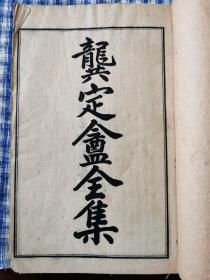 龔定盦全集